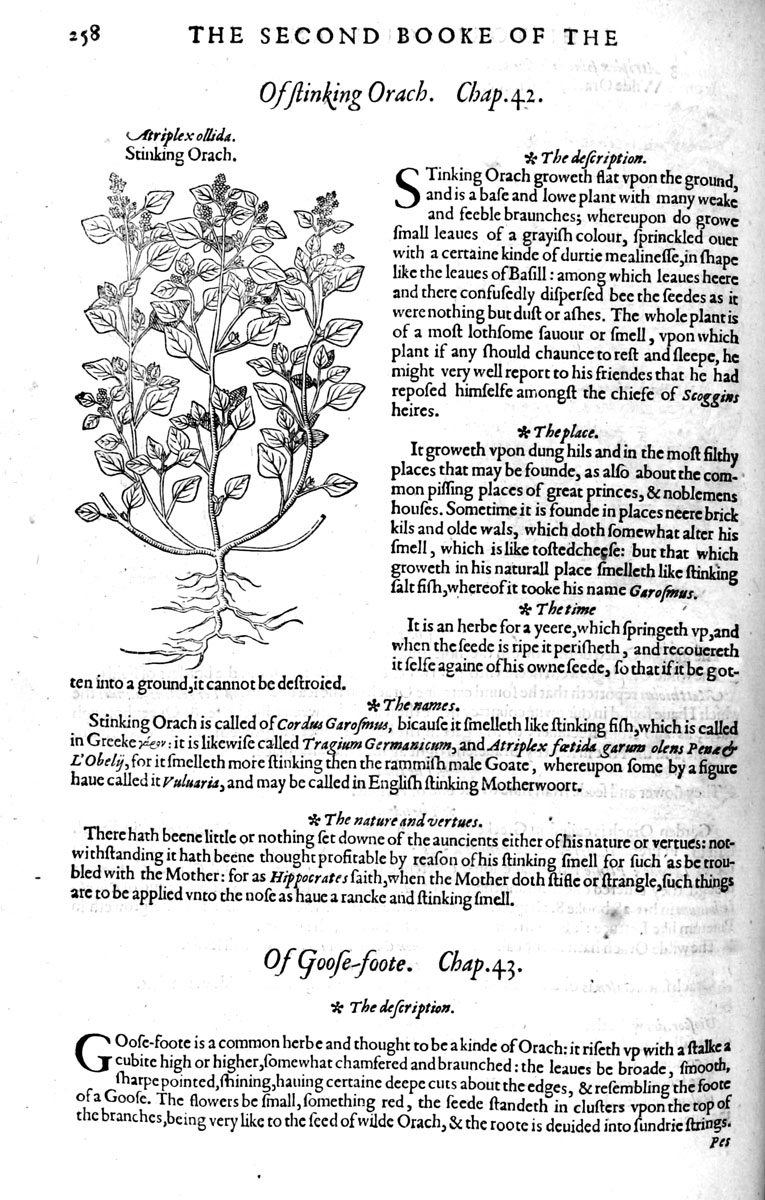 258 THE SECOND BOOKE OF THE
Of ſtinking Orach. Chap.42.
Atriplex ollida.
Stinking Orach.
✻ The deſcription.
STinking Orach groweth flat vpon the ground,
and is a baſe and lowe plant with many weake
and feeble braunches; whereupon do growe
ſmall leaues of a grayiſh colour, ſprinckled ouer
with a certaine kinde of durtie mealineſſe, in ſhape
like the leaues of Baſill: among which leaues heere
and there confuſedly diſperſed bee the ſeedes as it
were nothing but duſt or aſhes. The whole plant is
of a moſt lothſome ſauour or ſmell, vpon which
plant if any ſhould chaunce to reſt and ſleepe, he
might very well report to his friendes that he had
repoſed himſelfe amongſt the chiefe of Scoggins
heires.
✻ The place.
It groweth vpon dung hils and in the moſt filthy
places that may be founde, as alſo about the com-
mon piſſing places of great princes, & noblemens
houſes. Sometime it is founde in places neere brick
kils and olde wals, which doth ſomewhat alter his
ſmell, which is like toſted cheeſe: but that which
groweth in his naturall place ſmelleth like ſtinking
ſalt fiſh, whereof it tooke his name Garoſmus.
✻ The time
It is an herbe for a yeere, which ſpringeth vp, and
when the ſeede is ripe it periſheth, and recouereth
it ſelfe againe of his owne ſeede, ſo that if it be got-
ten into a ground, it cannot be deſtroied.
✻ The names.
Stinking Orach is called of Cordus Garoſmus, bicauſe it ſmelleth like ſtinking fiſh, which is called
in Greeke : it is likewiſe called Tragium Germanicum, and Atriplex fœtida garum olens Penæ &
L'Obelij, for it ſmelleth more ſtinking then the rammiſh male Goate, whereupon ſome by a figure
haue called it Vuluaria, and may be called in Engliſh ſtinking Motherwoort.
✻ The nature and vertues.
There hath beene little or nothing ſet downe of the auncients either of his nature or vertues: not-
withſtanding it hath beene thought profitable by reaſon of his ſtinking ſmell for ſuch as be trou-
bled with the Mother: for as Hippocrates ſaith, when the Mother doth ſtifle or ſtrangle, ſuch things
are to be applied vnto the noſe as haue a rancke and ſtinking ſmell.
Of Gooſe-foote. Chap.43.
✻ The deſcription.
GOoſe-foote is a common herbe and thought to be a kinde of Orach: it riſeth vp with a ſtalke a
cubite high or higher, ſomewhat chamfered and braunched: the leaues be broade, ſmooth,
ſharpe pointed, ſhining, hauing certaine deepe cuts about the edges, & reſembling the foote
of a Gooſe. The flowers be ſmall, ſomething red, the ſeede ſtandeth in cluſters vpon the top of
the branches, being very like to the ſeed of wilde Orach, & the roote is deuided into ſundrie ſtrings.
Pes